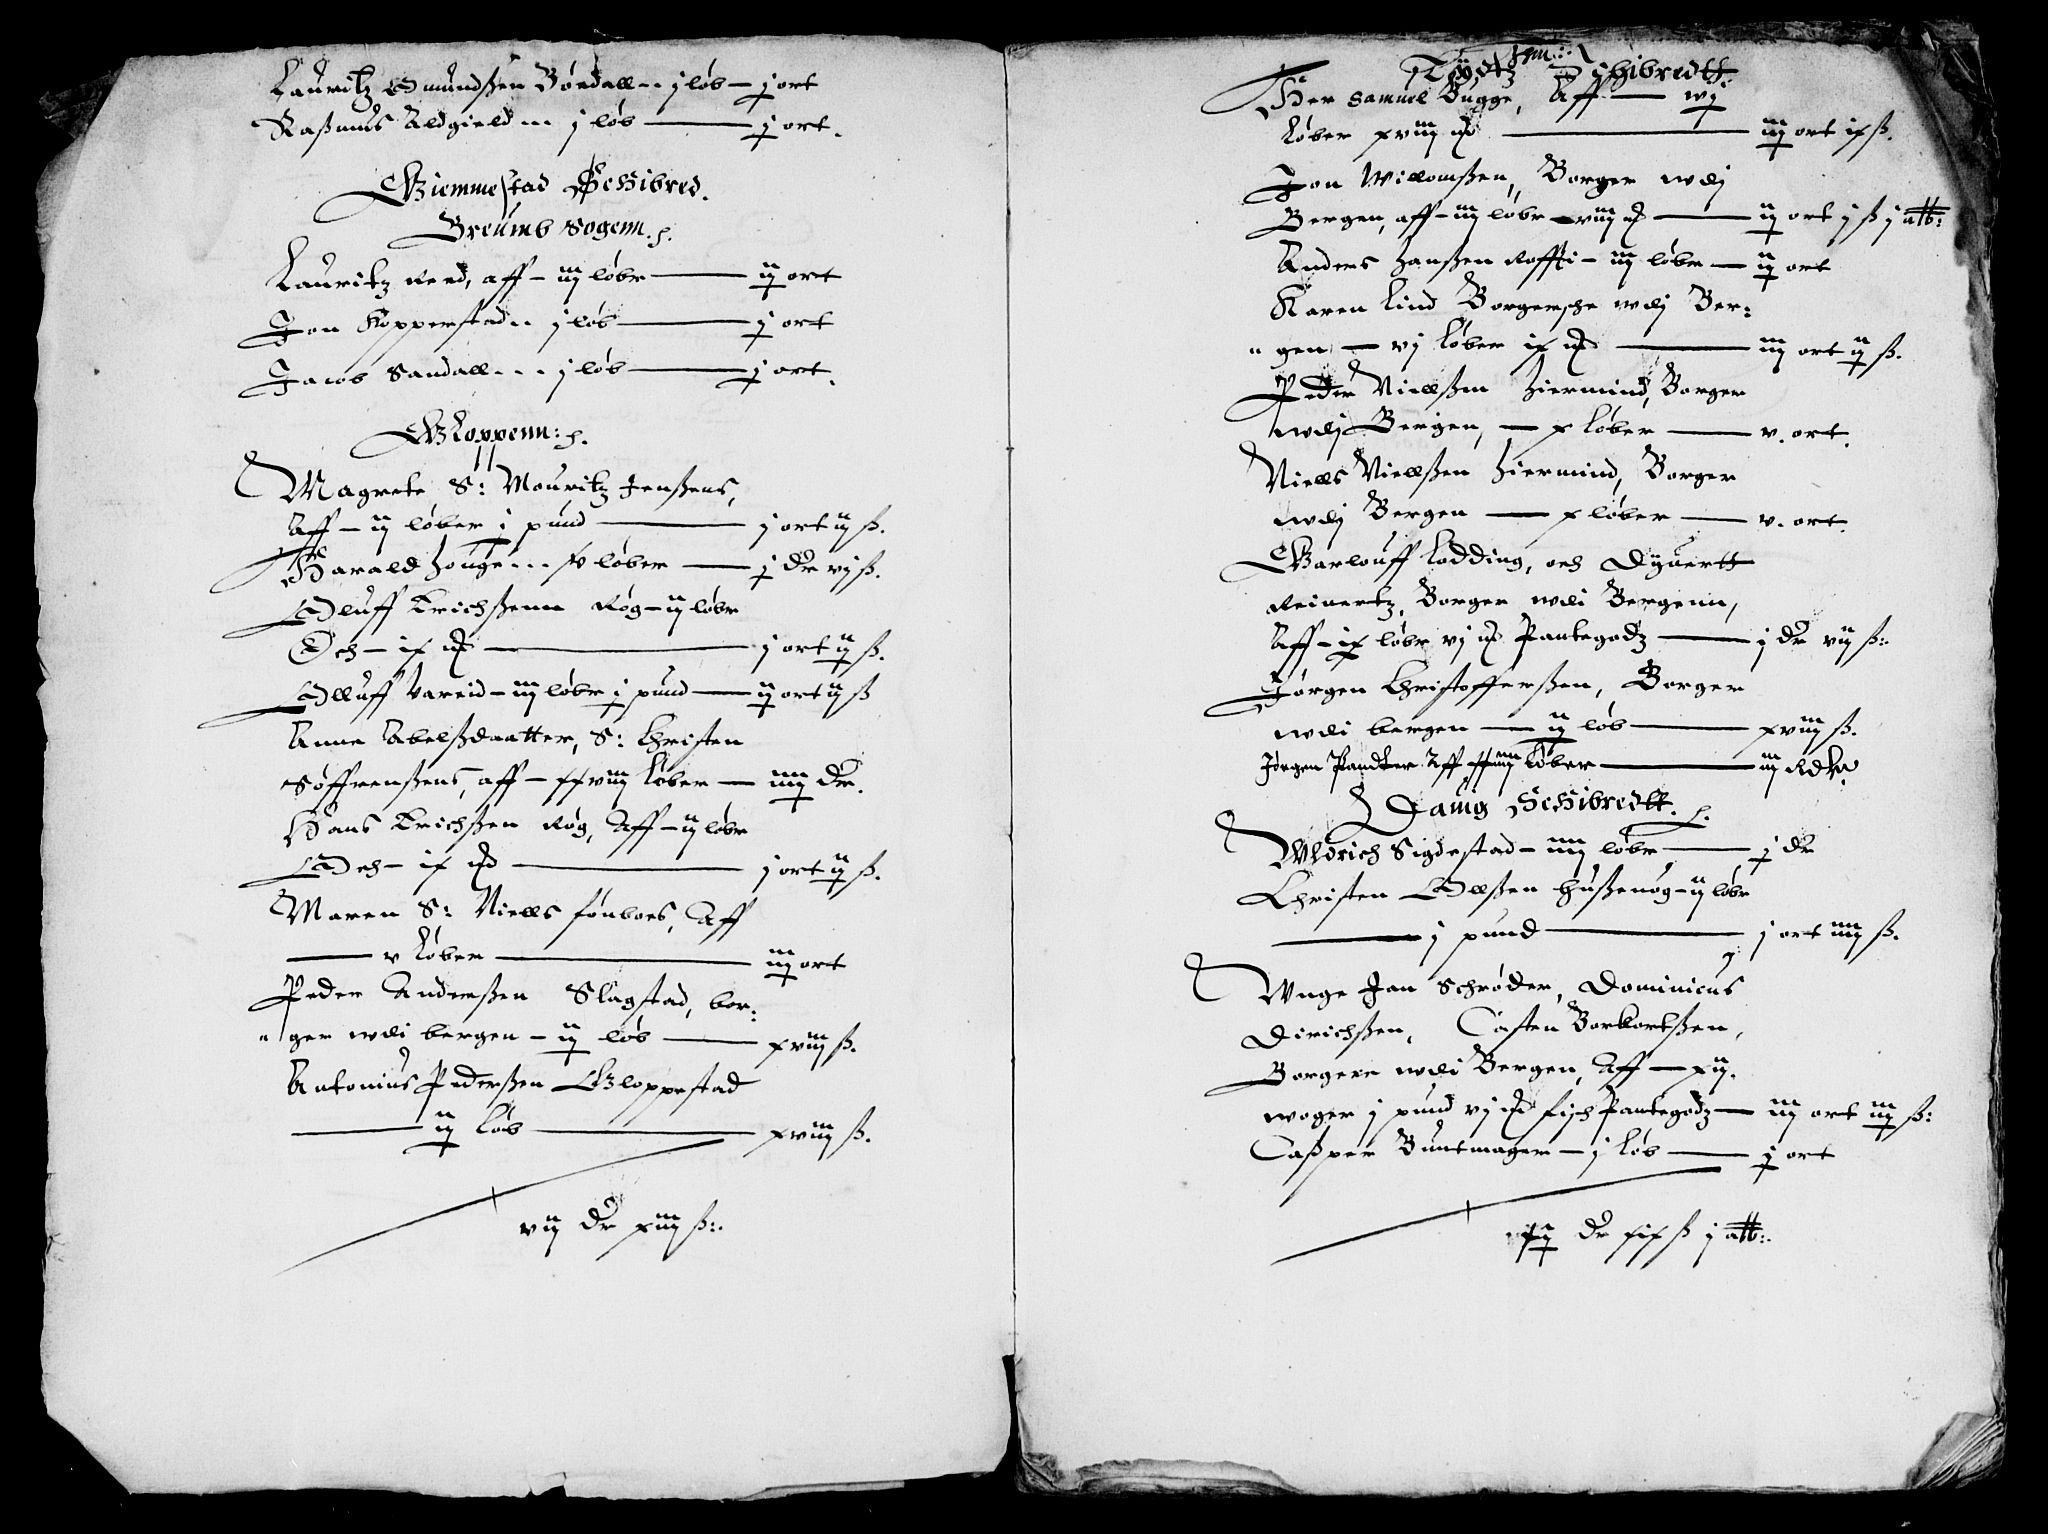 Lauritz Omundßen Børdall -- j løb — j ort
Raßmus Aldgield --- j løb — j ort.
Giemmestad Schibred.
Breumb Sogenn.
Lauritz Reed, aff - iij løbr — ij ort
Jon Kopperstad -- j løb — j ort
Jacob Sandall --- j løb — j ort.
Gloppenn:
Magrete S: Mouritz Jenßens,
Aff - ij løber j pund — j ort ij ß.
Harald Houge --- løber — j dr vj ß.
Oluff Erichßenn Røg - ij løbr
Och - ix — j ort ij ß.
Olluff Vareid - iij løbr j pund — ij ort ij ß
Anna Abelßdaatter, S: Christen
Søffrenßens, aff - xxviij løber — iiij dr.
Hans Erichßen Røg, Aff - ij løbr
Och - ix — j ort ij ß.
Maren S: Niells fønboes, Aff
— v løber — iij ort
Peder Anderßen Slagstad, bor:
" ger wdi bergen - ij løb — xviij ß.
Antonius Pederßen Gloppestad
— ij løb — xviij ß.
vij dr xiij ß:.
Schibredtt.
Her Samuel Bugge, Aff — vj
løber xviij — iij ort ix ß.
Jon Willomßen, Borger wdj
Bergen, aff - iij løbr viij — ij ort j ß j alb:
Anders Hanßen - iij løbr — ij ort
Karen Lind Borgersche wdj Ber:
" gen — vj løber ix — iij ort ij ß.
Peder Niellßen Hiermind, Borger
wdj Bergen, — x løber — v. ort.
Niells Niellßen Hiermind, Borger
wdj Bergen — x løber — v. ort.
Garlouff Lodding, och Dyuertt
Reinertz, Borger wdi Bergenn,
Aff - ix løbr vj Pantegodz — j dr vij ß:
Jørgen Christofferßen, Borger
wdi bergen — ij løb — xviij ß.
Jørgen Aff løber — iij
Dauig Schibredtt.
Wldrich Sigdestad - iiij løbr — j dr
Christen Ollßen Hußenøg - ij løbr
— j pund — j ort iiij ß.
Wnge Jan Schrøder, Dominicus
Dirichßen, Casten Borkortßen,
Borgere wdi Bergen, Aff — xij.
woger j pund vj fisch Pantegodz — iij ort iij ß:
Caßper Buntmager — j løb — j ort
dr xix ß j alb:.